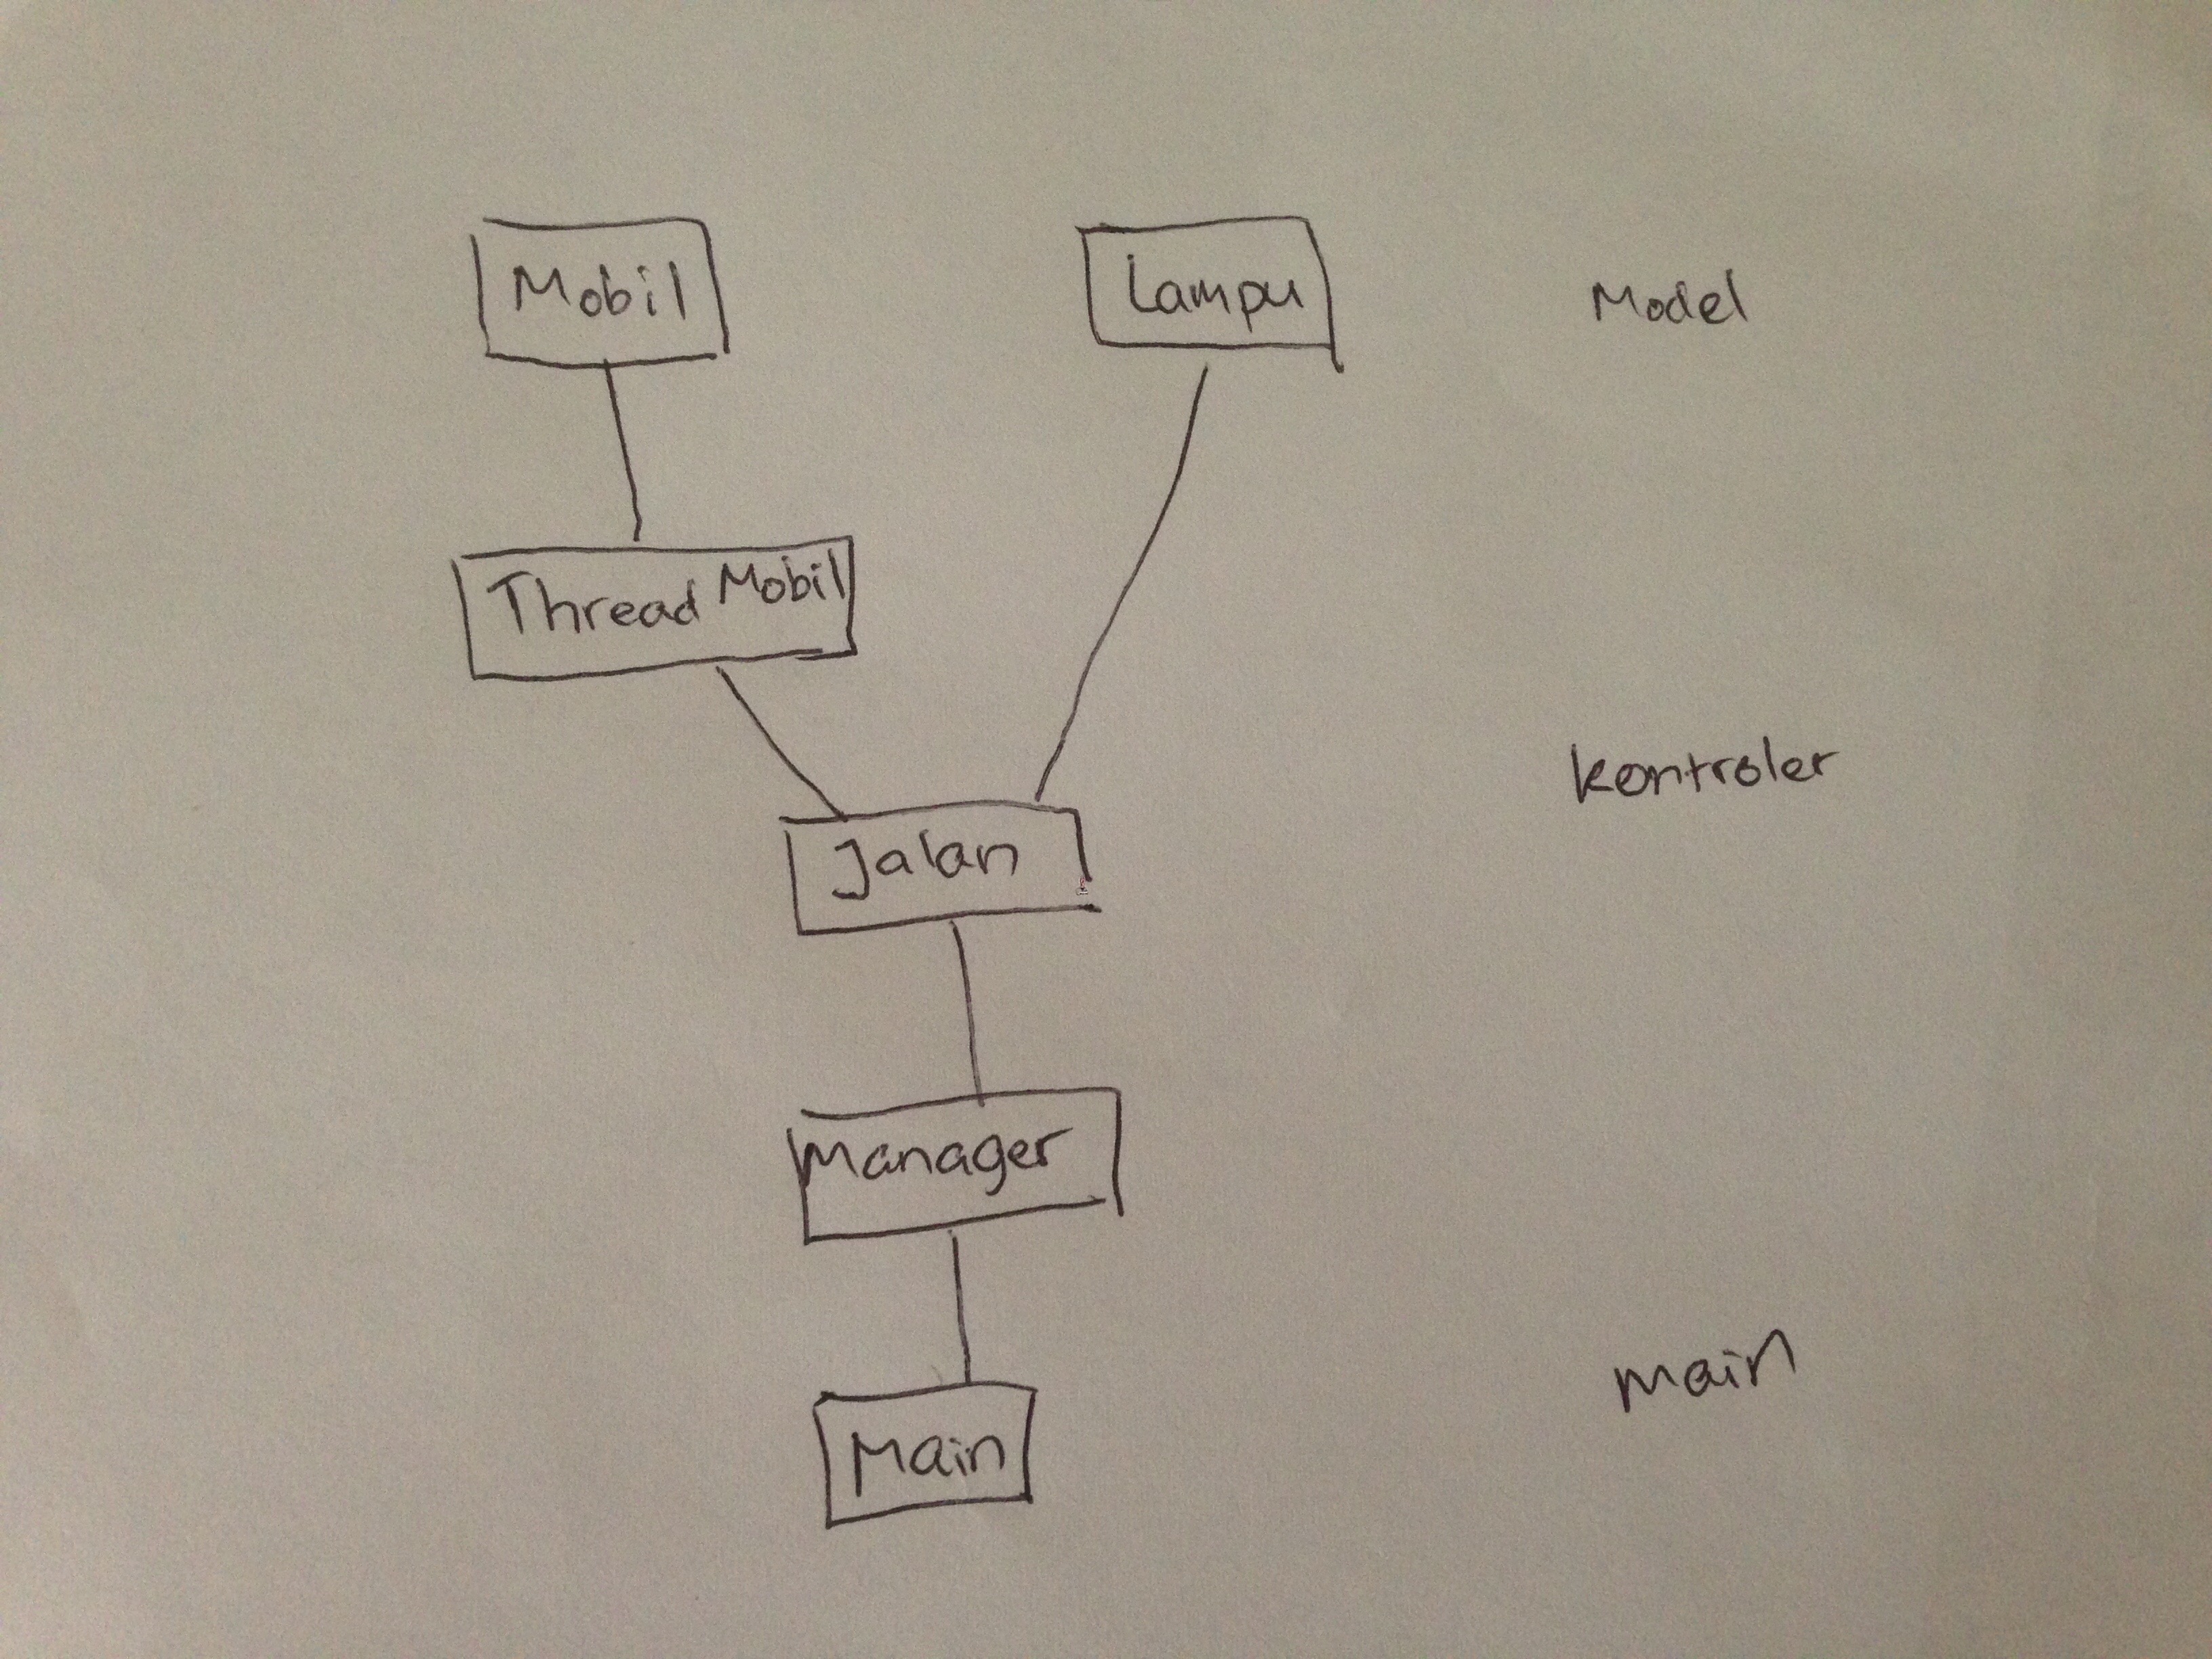 Mobil
Lampu
Model
Thread Mobil
kontroler
Jalan
Manager
main
Main